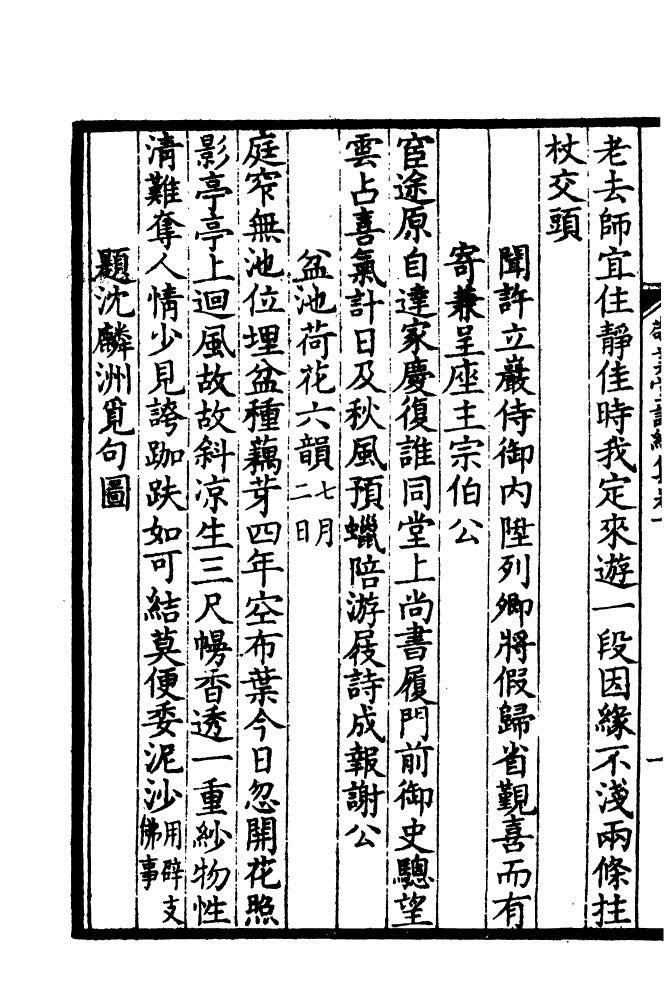 老去師宜住靜佳時我定來遊一段因緣不淺兩條拄
杖交頭
聞許立巖侍御內陞列卿將假歸省覲喜而有
寄兼呈座主宗伯公
宦途原自達家慶復誰同堂上尚書履門前御史驄望
雲占喜氣計日及秋風預蠟陪游屐詩成報謝公
盆池荷花六韻七月二日
庭窄無池位埋盆種藕芽四年空布葉今日忽開花照
影亭亭上迴風故故斜凉生三尺幌香透一重紗物性
清難奪人情少見誇跏趺如可結莫便委泥沙用辟支佛事
題沈麟洲覓句圖